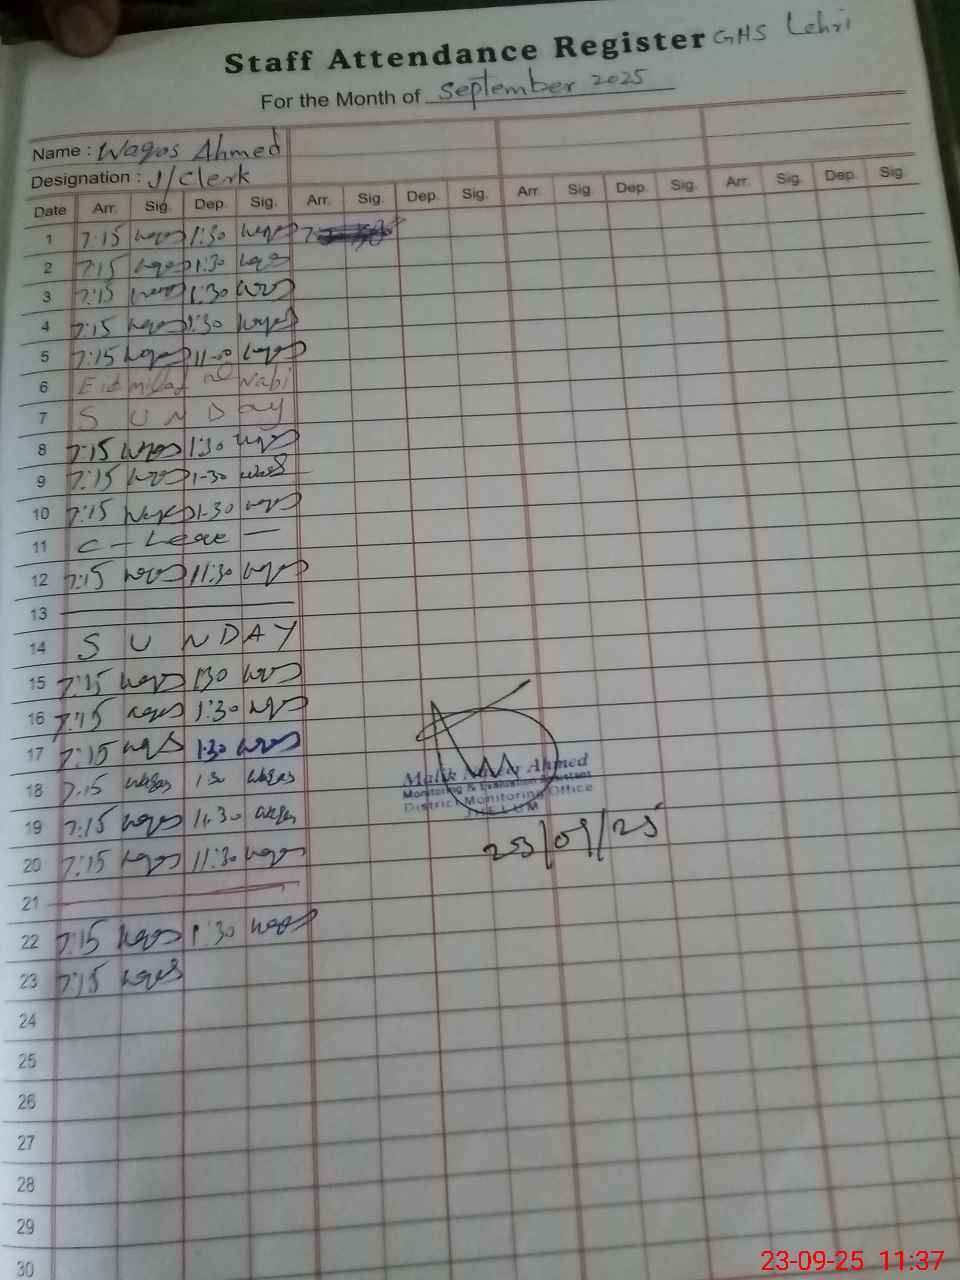 Staff Attendance Register GHS Lehri
For the Month of September 2025
Name : Waqas Ahmed
Designation : J/Clerk
Date Arr. Sig. Dep. Sig. Arr. Sig. Dep. Sig. Arr. Sig. Dep. Sig. Arr. Sig. Dep. Sig.
1 7:15 waqas 1:30 waqas
2 7:15 waqas 1:30 waqas
3 7:15 waqas 1:30 waqas
4 7:15 waqas 1:30 waqas
5 7:15 waqas 11-00 waqas
6 Eid milad ul Nabi
7 S U N D ay
8 7:15 waqas 1:30 waqas
9 7:15 waqas 1-30 waqas
10 7:15 waqas 1-30 waqas
11 C - Leave —
12 7:15 waqas 11:30 waqas
13
14 S U N D A Y
15 7:15 waqas 130 waqas
16 7:15 waqas 1:30 waqas
17 7:15 waqas 1:30 waqas
18 7:15 waqas 1:30 waqas
19 7:15 waqas 11:30 waqas
20 7:15 waqas 11:30 waqas
21
22 7:15 waqas 1:30 waqas
23 7:15 waqas
24
25
26
27
28
29
30
Malik Ahmed
Monitoring & Evaluation Assistant
District Monitoring Office
JHELUM
23/09/25
23-09-25 11:37